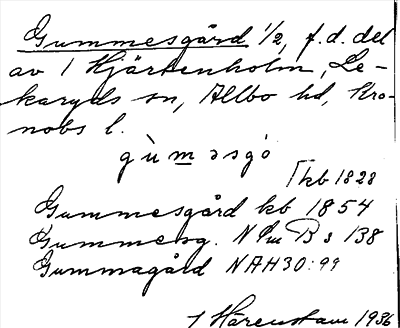 Gummesgård 1/2, f. d. del
av 1 Hjärtenholm, Le-
karyds sn, Allbo hd, Kro-
nobs l.
gùm əsgò
kb 1828
Gummesgård kb 1854
Gummesg. N Sm B 138
Gummagård NAH30:99
Härenstam 1936